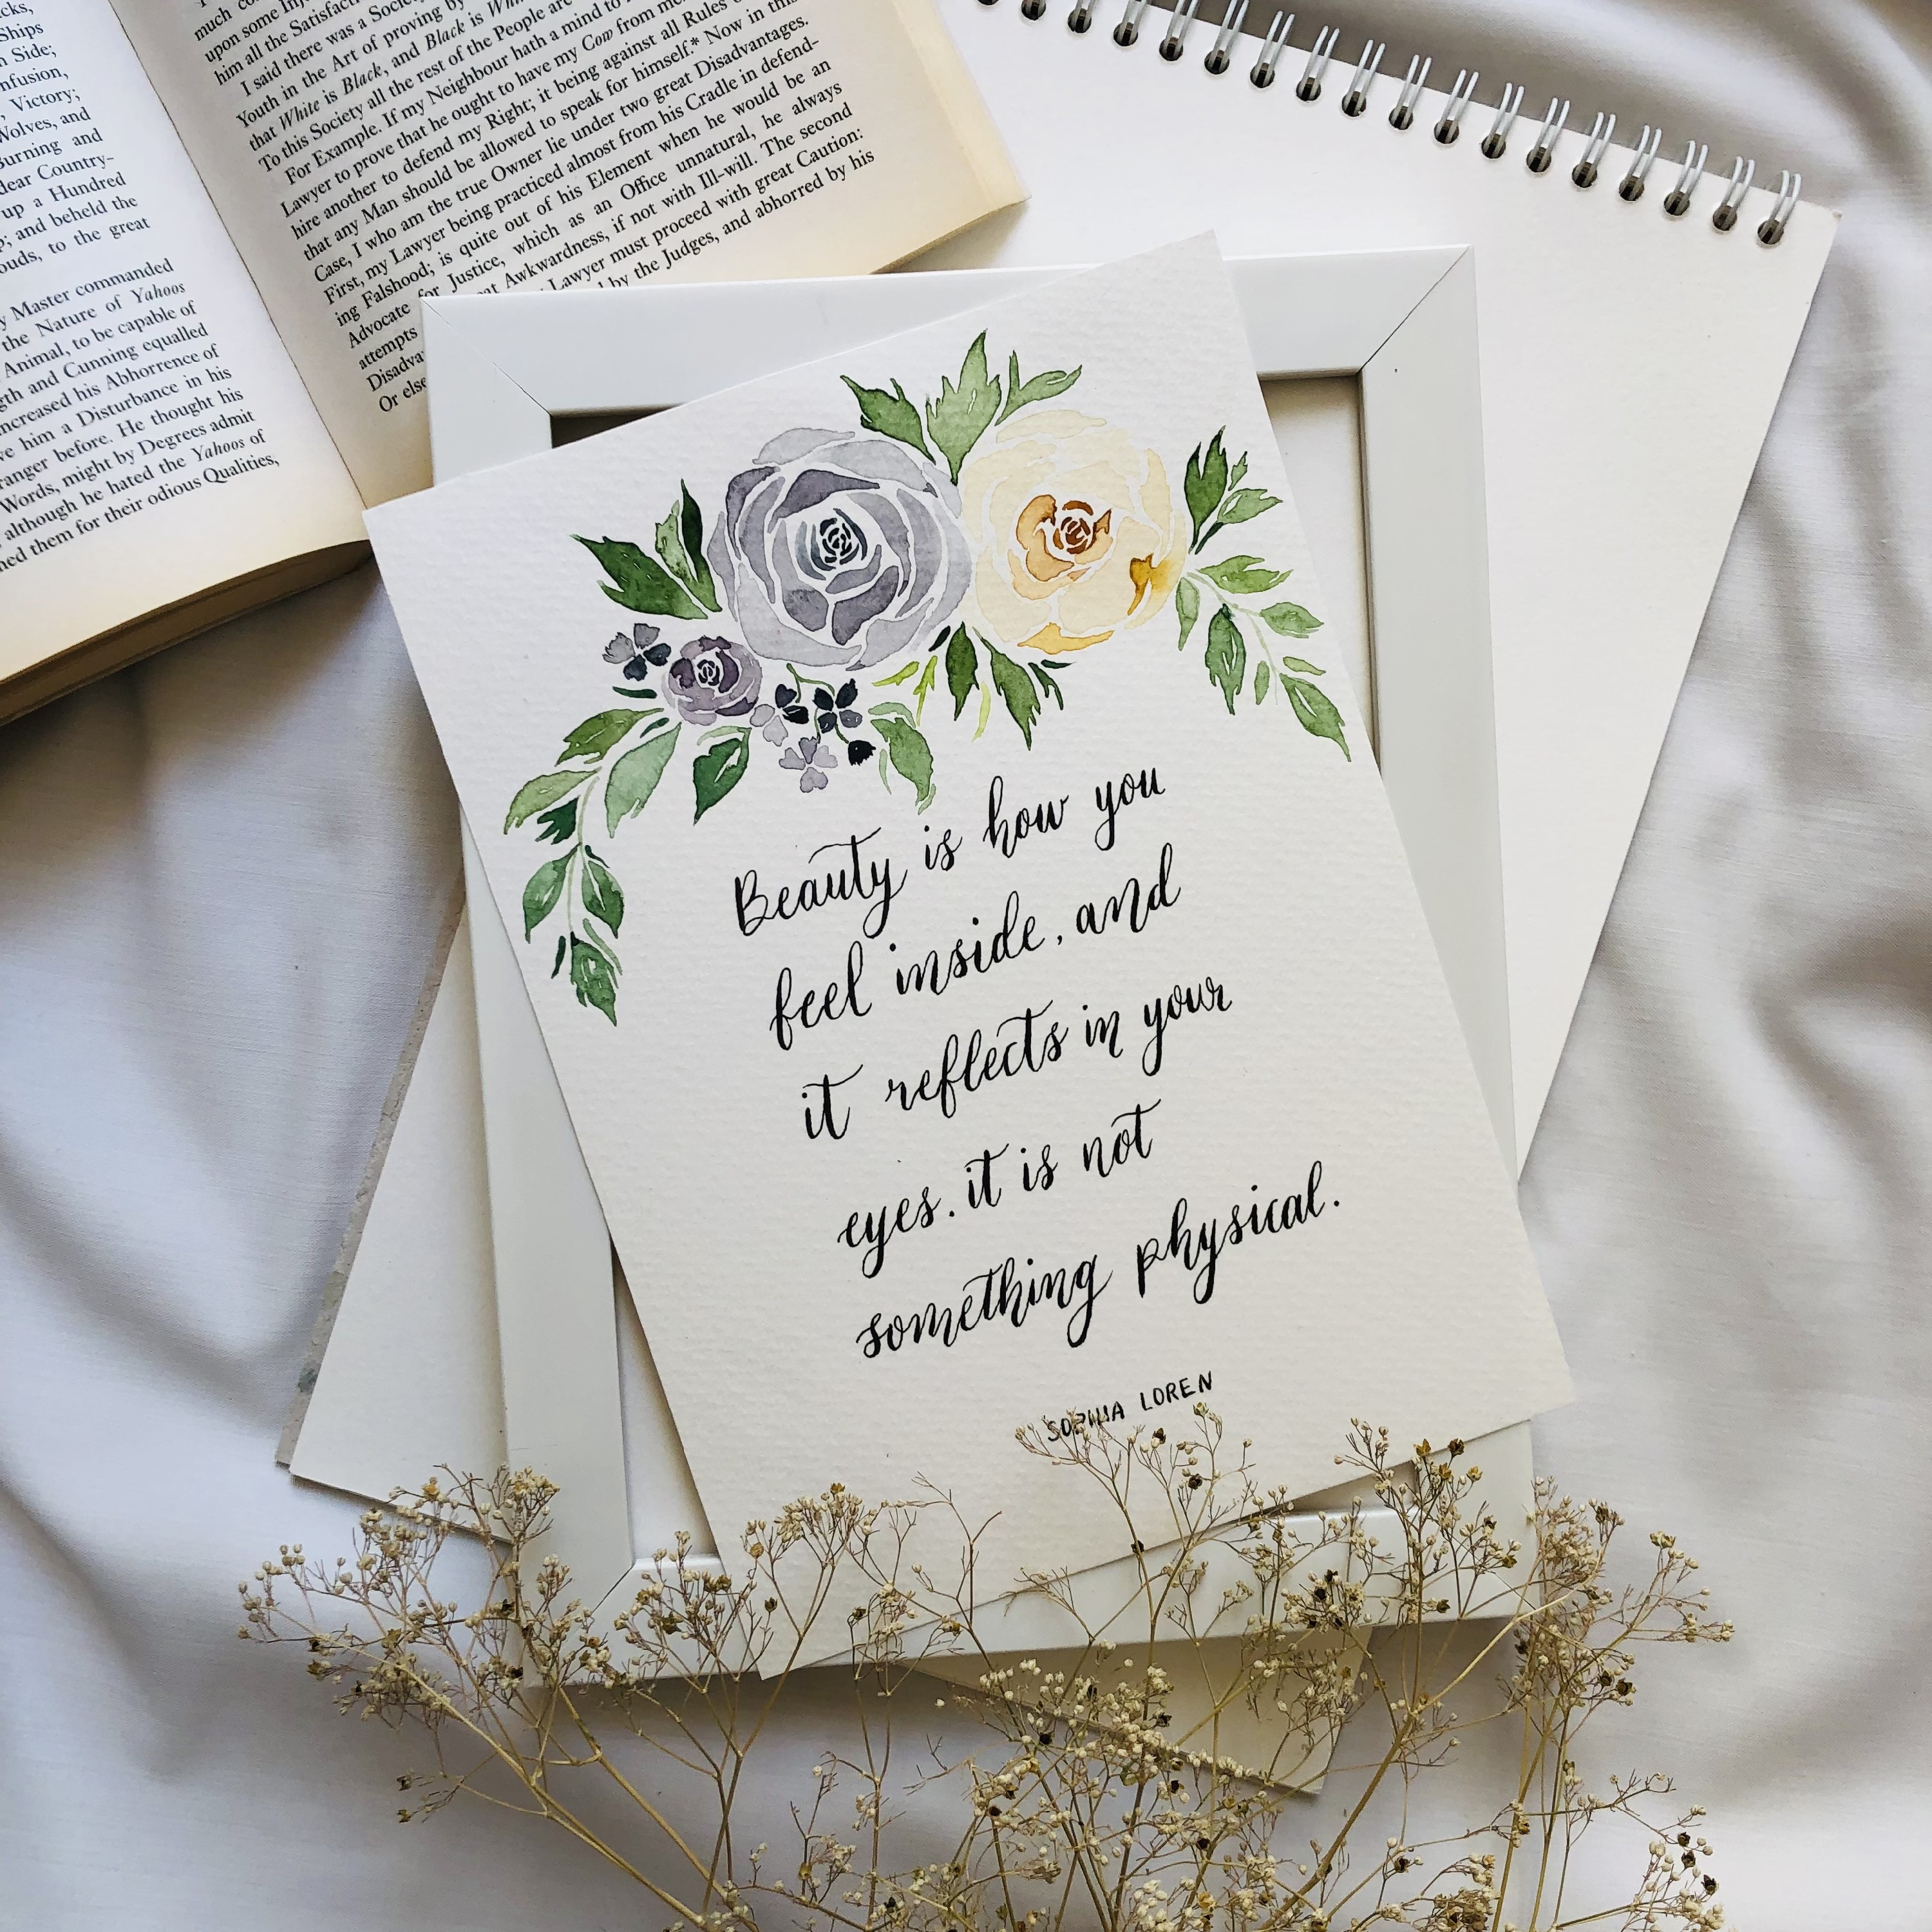 cks,
Ships
n Side;
nfusion,
, Victory;
Wolves, and
Burning and
dear Country-
up a Hundred
p; and beheld the
ouds, to the great
y Master commanded
the Nature of Yahoos
Animal, to be capable of
gth and Cunning equalled
increased his Abhorrence of
ve him a Disturbance in his
ranger before. He thought his
Words, might by Degrees admit
although he hated the Yahoos of
ned them for their odious Qualities,
upon some
him all the
I said there was a
Youth in the Art of proving by
that White is Black, and Black is
To this Society all the rest of the People are
For Example. If my Neighbour hath a mind to my Cow
Lawyer to prove that he ought to have my Cow from
hire another to defend my Right; it being against all Rules
that any Man should be allowed to speak for himself.* Now in this
Case, I who am the true Owner lie under two great Disadvantages.
First, my Lawyer being practiced almost from his Cradle in defend-
ing Falshood; is quite out of his Element when he would be an
Advocate for Justice, which as an Office unnatural, he always
attempts Awkwardness, if not with Ill-will. The second
Disadva Lawyer must proceed with great Caution:
Or else by the Judges, and abhorred by his
Beauty is how you
feel inside, and
it reflects in your
eyes. it is not
something physical.
SOPHIA LOREN